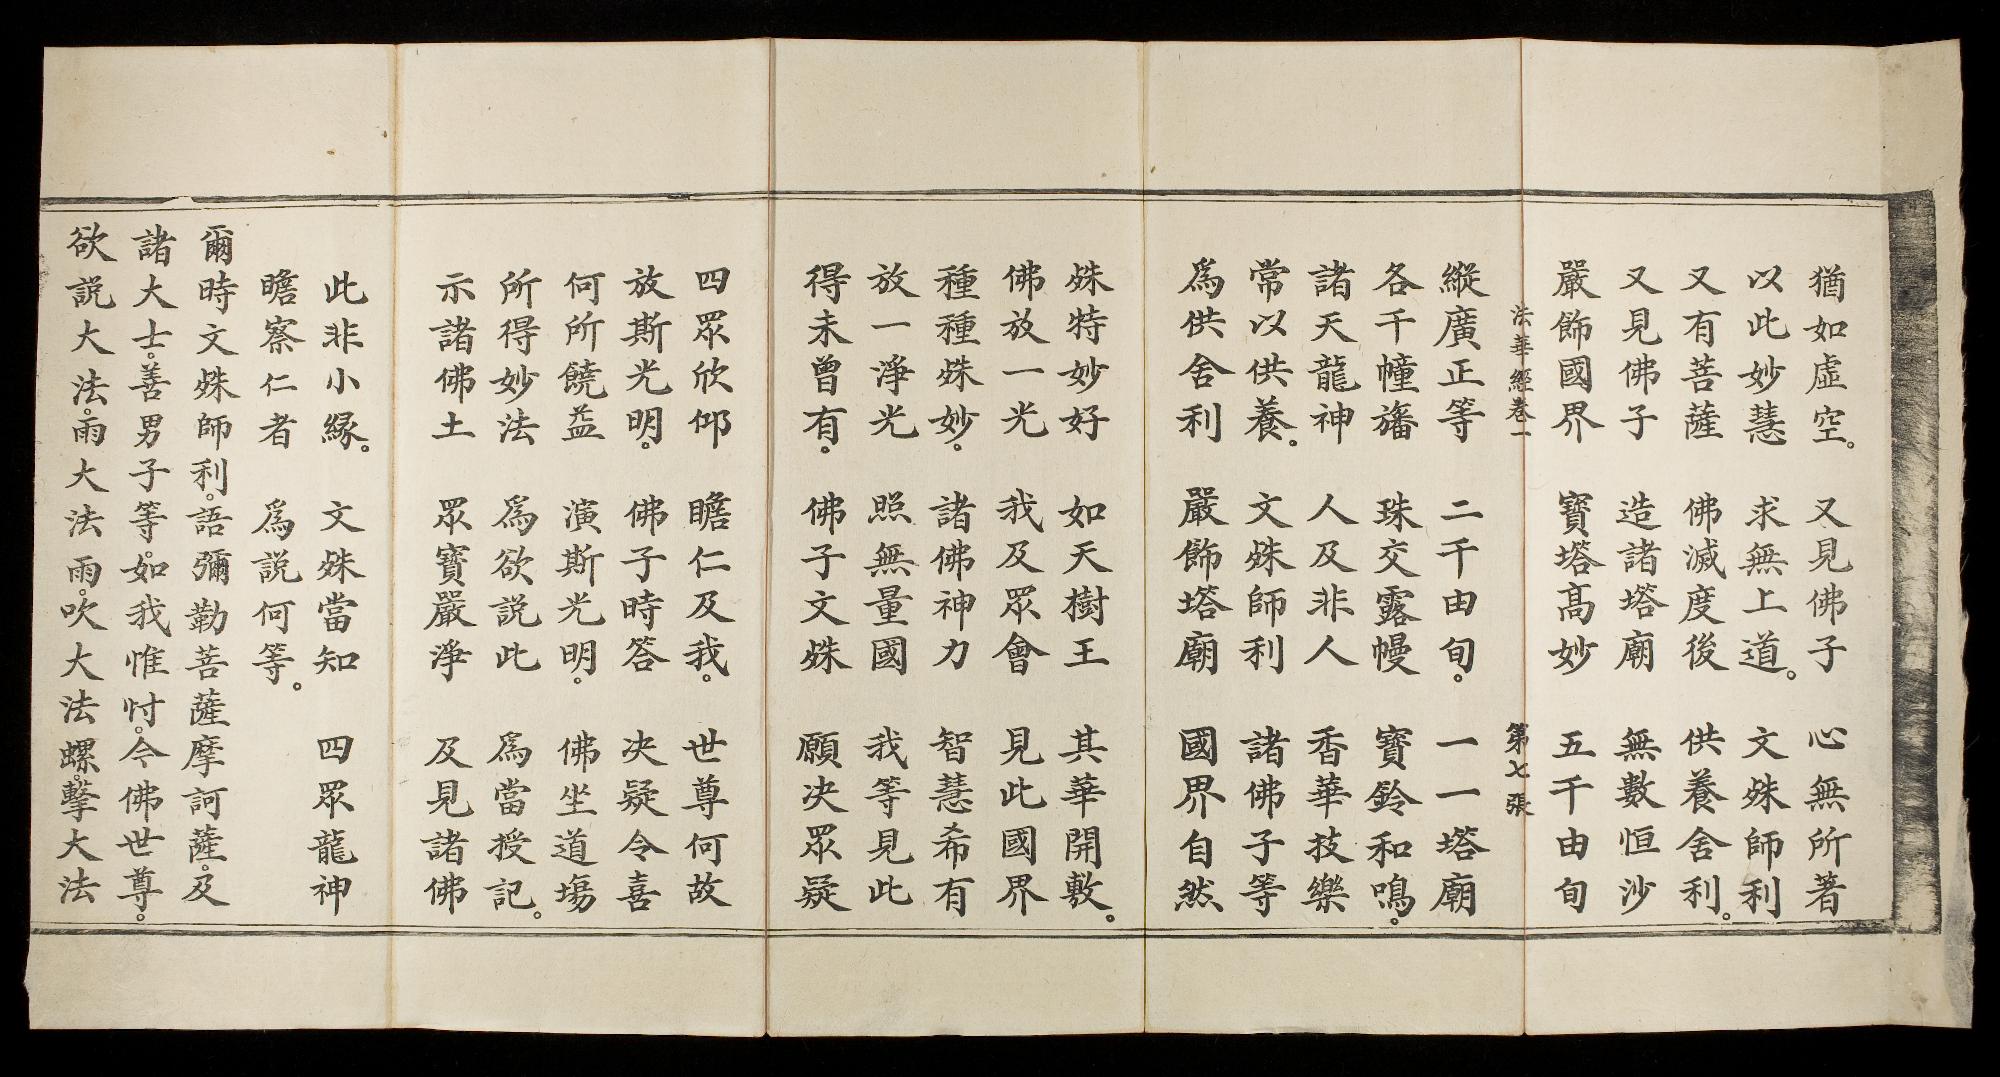 猶如虛空。 又見佛子 心無所著
以此妙慧 求無上道。 文殊師利
又有菩薩 佛滅度後 供養舍利。
又見佛子 造諸塔廟 無數恒沙
嚴飾國界 寶塔高妙 五千由旬
法華經卷一 第七張
縱廣正等 二千由旬。 一一塔廟
各千幢旛 珠交露幔 寶鈴和鳴。
諸天龍神 人及非人 香華技樂
常以供養。 文殊師利 諸佛子等
爲供舍利 嚴飾塔廟 國界自然
殊特妙好 如天樹王 其華開敷。
佛放一光 我及眾會 見此國界
種種殊妙。 諸佛神力 智慧希有
放一淨光 照無量國 我等見此
得未曾有。 佛子文殊 願决眾疑
四眾欣仰 瞻仁及我。 世尊何故
放斯光明。 佛子時答 决疑令喜
何所饒益 演斯光明。 佛坐道場
所得妙法 爲欲說此 爲當授記。
示諸佛土 眾寶嚴淨 及見諸佛
此非小緣。 文殊當知 四眾龍神
瞻察仁者 爲說何等。
爾時文殊師利。語彌勒菩薩摩訶薩。及
諸大士。善男子等。如我惟忖。今佛世尊。
欲說大法。雨大法雨。吹大法螺。擊大法